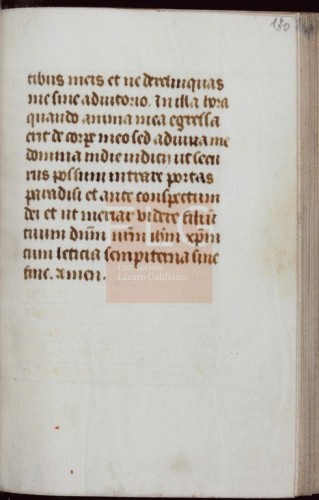 180
tibus meis et ne derelinquas
me sine adiutorio. In illa hora
quando anima mea egressa
erit de corpe meo sed adiuua me
domina in die iudicii ut secu
rus possum intrare portas
paradisi et ante conspectum
dei et ut merear videre filiu
tuum dnm nrm ihm xpm
cum leticia sempiterna sine
fine. Amen.
Fundación
Lázaro Galdiano